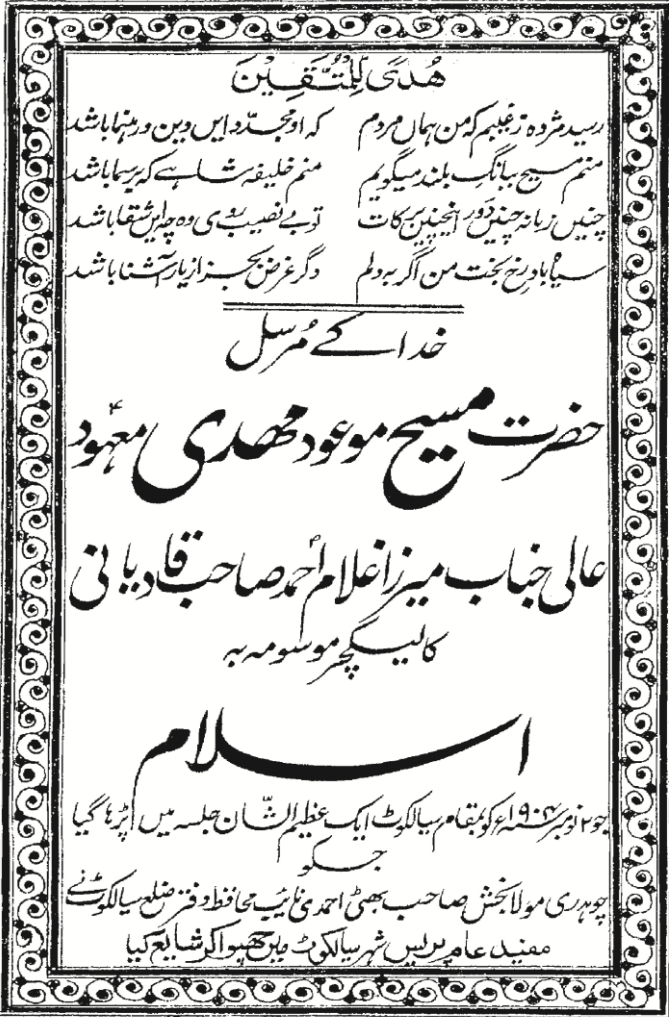 هُدًى لِّلْمُتَّقِيْنَ
رسید مژده ز غیبم که من همان مردم که او مجدّد ایں دین و رہنما باشد
منم مسیح ببانگِ بلند میگویم منم خلیفہ شاہے که برسما باشد
چنیں زمانہ چنیں دور اینچنیں برکات تو بے نصیب روی وہ چہ ایں شقا باشد
سیاہ باد رخِ بخت من اگر بہ دلم دگر غرض بجز از یارِ آشنا باشد
خدا کے مُرسل
حضرت مسیح موعود مھدی معہود ؑ
عالی جناب میرزا غلام احمد صاحب قادیانی
کا لیکچر موسومہ بہ
اسلام
جو ۲ نومبر ۱۹۰۴ء کو بمقام سیالکوٹ ایک عظیم الشّان جلسہ میں پڑہا گیا
جسکو
چوہدری مولا بخش صاحب بھٹی احمدی نائب محافظ دفتر ضلع سیالکوٹ نے
مفید عام پریس شہر سیالکوٹ میں چھپوا کر شایع کیا